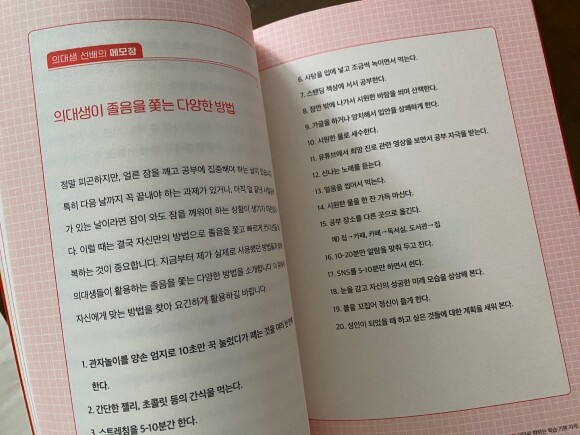 의대생 선배의 메모장
의대생이 졸음을 쫓는 다양한 방법
정말 피곤하지만, 얼른 잠을 깨고 공부에 집중해야 하는 날이 있습니다.
특히 다음 날까지 꼭 끝내야 하는 과제가 있거나, 아직 덜 끝낸
가 있는 날이라면 잠이 와도 잠을 깨워야 하는 상황이 생기기
다. 이럴 때는 결국 자신만의 방법으로 졸음을 쫓고 빠르게
복하는 것이 중요합니다. 지금부터 제가 실제로 사용했던 방법들과
의대생들이 활용하는 졸음을 쫓는 다양한 방법을 소개합니다.
자신에게 맞는 방법을 찾아 요긴하게 활용하길 바랍니다.
1. 관자놀이를 양손 엄지로 10초만 꾹 눌렀다가 떼는 것을
한다.
2. 간단한 젤리, 초콜릿 등의 간식을 먹는다.
3. 스트레칭을 5-10분간 한다.
6. 사탕을 입에 넣고 조금씩 녹이면서 먹는다.
7. 스탠딩 책상에 서서 공부한다.
8. 잠깐 밖에 나가서 시원한 바람을 쐬며 산책한다.
9. 가글을 하거나 양치해서 입안을 상쾌하게 한다.
10. 시원한 물로 세수한다.
11. 유튜브에서 희망 진로 관련 영상을 보면서 공부 자극을 받는다.
12. 신나는 노래를 듣는다.
13. 얼음을 씹어서 먹는다.
14. 시원한 물을 한 잔 가득 마신다.
15. 공부 장소를 다른 곳으로 옮긴다.
예) 집→카페, 카페→독서실, 도서관→집
16. 10-20분만 알람을 맞춰 두고 잔다.
17. SNS를 5-10분만 하면서 쉰다.
18. 눈을 감고 자신의 성공한 미래 모습을 상상해 본다.
19. 볼을 꼬집어 정신이 들게 한다.
20. 성인이 되었을 때 하고 싶은 것들에 대한 계획을 세워 본다.